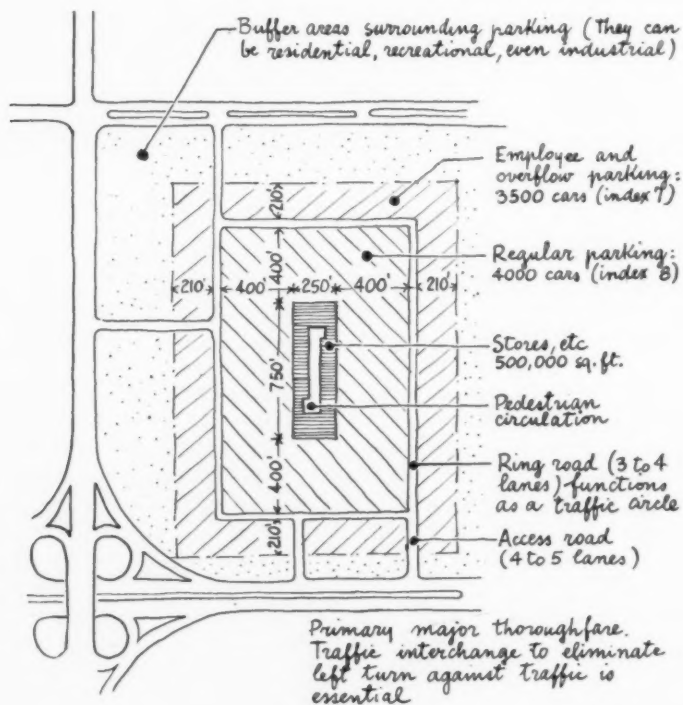 Buffer areas surrounding parking (They can
be residential, recreational, even industrial)
Employee and
overflow parking:
3500 cars (index 7)
Regular parking:
4000 cars (index 8)
Stores, etc
500,000 sq. ft.
Pedestrian
circulation
Ring road (3 to 4
lanes) functions
as a traffic circle
Access road
(4 to 5 lanes)
210'
400'
210' 400' 250' 400' 210'
750'
400'
210'
Primary major thoroughfare.
Traffic interchange to eliminate
left turn against traffic is
essential